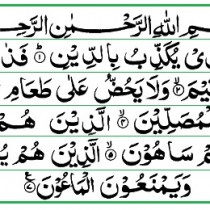 مِ اللّٰهِ الرَّحْمٰنِ الرَّحِ
يُكَذِّبُ بِالدِّيْنِ ۝۱ فَذٰ
وَلَا يَحُضُّ عَلٰى طَعَامِ
الَّذِيْنَ هُمْ
سَاهُوْنَ ۝۵ الَّذِيْنَ هُمْ يُ
وَيَمْنَعُوْنَ الْمَاعُوْنَ ۝۷